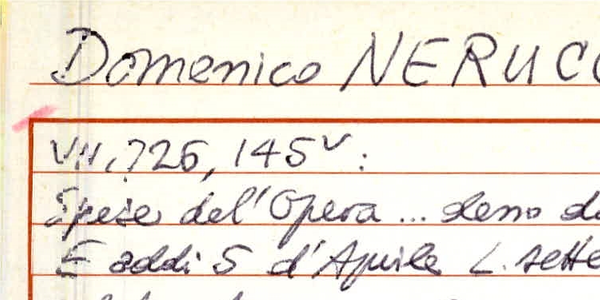 Domenico NERUCC
VII, 726, 145v:
Spese del'Opera ... deno d
E addi 5 d'Aprile L. sette